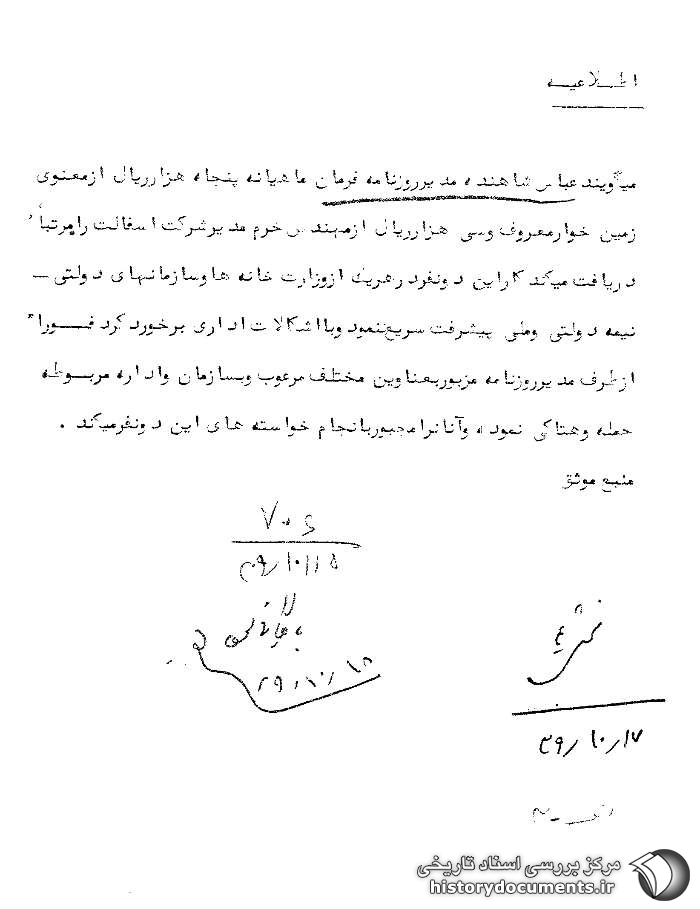 اطلاعیه
میگویند عباس شاهنده مدیر روزنامه فرمان ماهیانه پنجاه هزار ریال از معنوی
زمین خوار معروف وسی هزار ریال از مهندس خرم مدیر شرکت اسفالت را مرتباً
دریافت میکند کار این دو نفر در هریك از وزارت خانه ها و سازمانهای دولتی ـ
نیمه دولتی وملی پیشرفت سریع نمود وبا اشکالات اداری برخورد کرد فـورا"
از طرف مدیر روزنامه مزبور بعناوین مختلف مرعوب وبسازمان واداره مربوطه
حمله وهتاکی نموده وآنانرا مجبور بانجام خواسته های این دو نفر میکند .
منبع موثق
۷۰۶
۳۹/۱۰/۱۵
۳۹/۱۰/۱۸
۳۹/۱۰/۱۷
مرکز بررسی اسناد تاریخی
historydocuments.ir